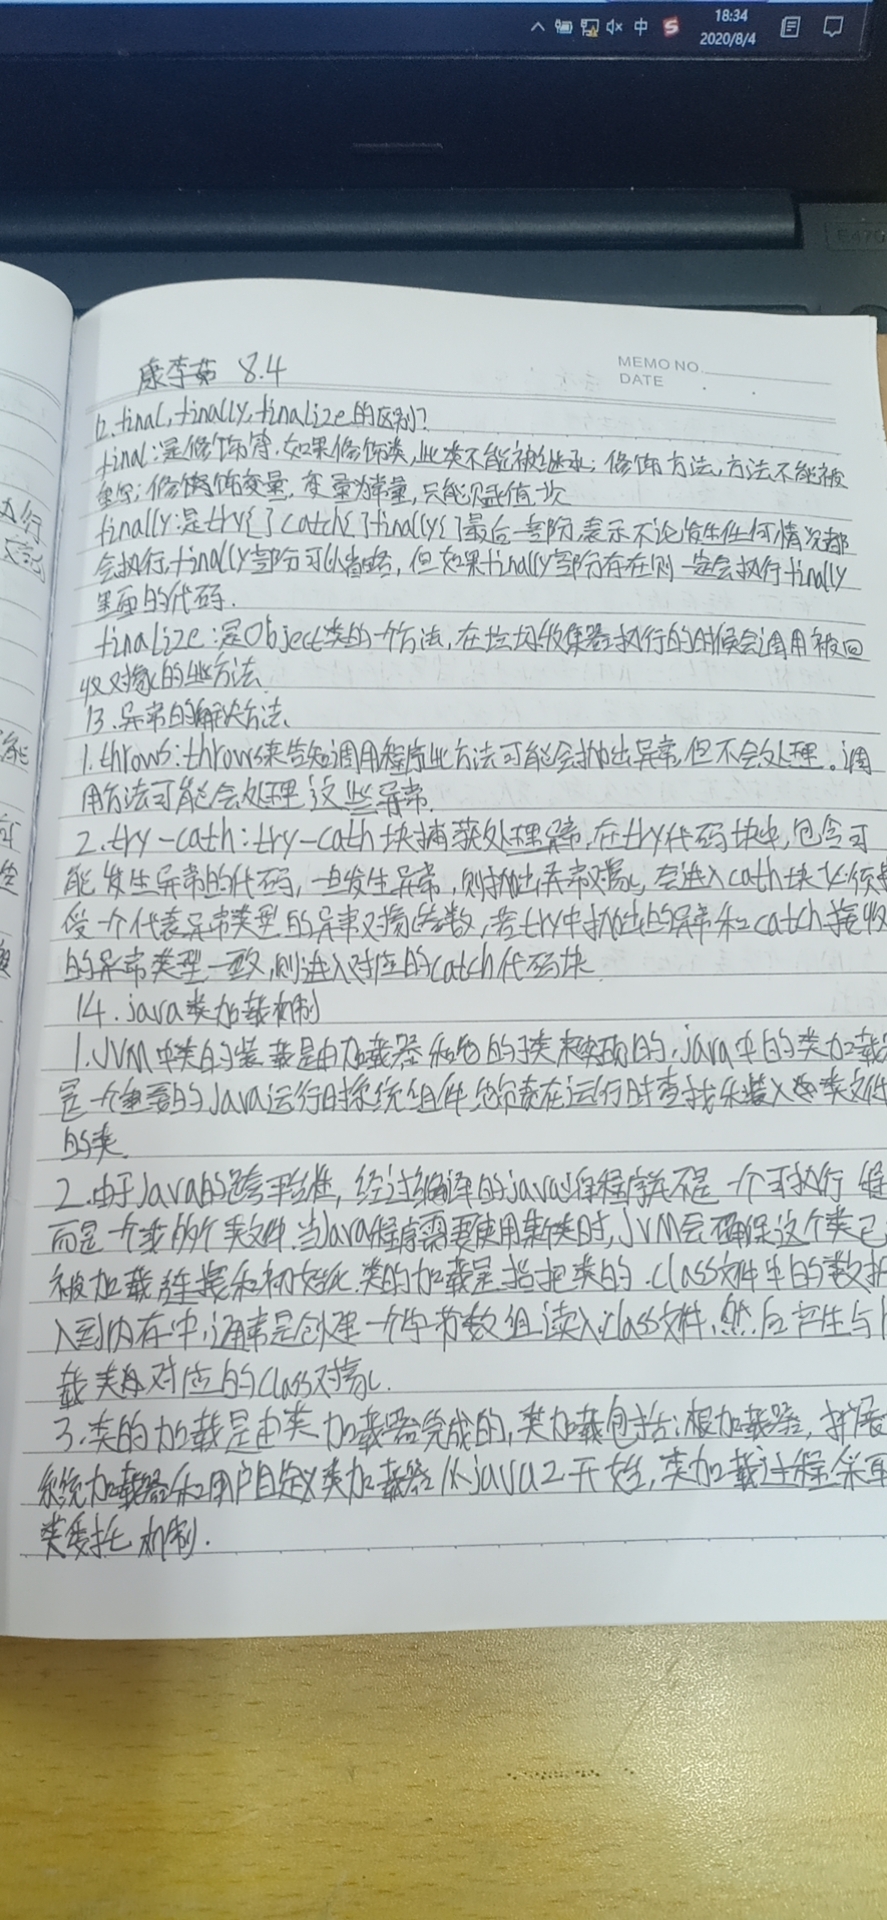 中
18:34
2020/8/4
E470
康李茹 8.4
MEMO NO.
DATE
12.final,finally,finalize的区别?
final:是修饰符.如果修饰类,此类不能被继承;修饰方法,方法不能被
重写;修饰变量,变量为常量,只能赋值一次
finally:是try{}catch{}finally{}最后一部分,表示不论发生任何情况都
会执行,finally部分可以省略,但如果finally部分存在则一定会执行finally
里面的代码.
finalize:是Object类的一个方法,在垃圾收集器执行的时候会调用被回
收对象的此方法.
13.异常的解决方法.
1.throws:throws来告知调用程序此方法可能会抛出异常,但不会处理。调
用方法可能会处理这些异常.
2.try-cath:try-cath块捕获处理异常,在try代码块中,包含可
能发生异常的代码,一旦发生异常,则抛出异常对象,会进入cath块必须
受一个代表异常类型的异常对象参数,若try中抛出的异常和catch接收
的异常类型一致,则进入对应的catch代码块
14.java类加载机制
1.JVM中类的装载是由加载器和它的子类来实现的.java中的类加载
是一个重要的Java运行时系统组件它负责在运行时查找和装入类文件
的类.
2.由于Java的跨平台性,经过编译的java源程序并不是一个可执行程
而是一个或的个类文件.当Java程序需要使用某个类时,JVM会确保这个类已
被加载,连接和初始化.类的加载是指把类的.class文件中的数据
入到内存中,通常是创建一个字节数组读入.class文件,然后产生与
载类对应的class对象.
3.类的加载是由类加载器完成的,类加载包括:根加载器,扩展
系统加载器和用户自定义类加载器从java2开始,类加载过程采取
类委托机制.